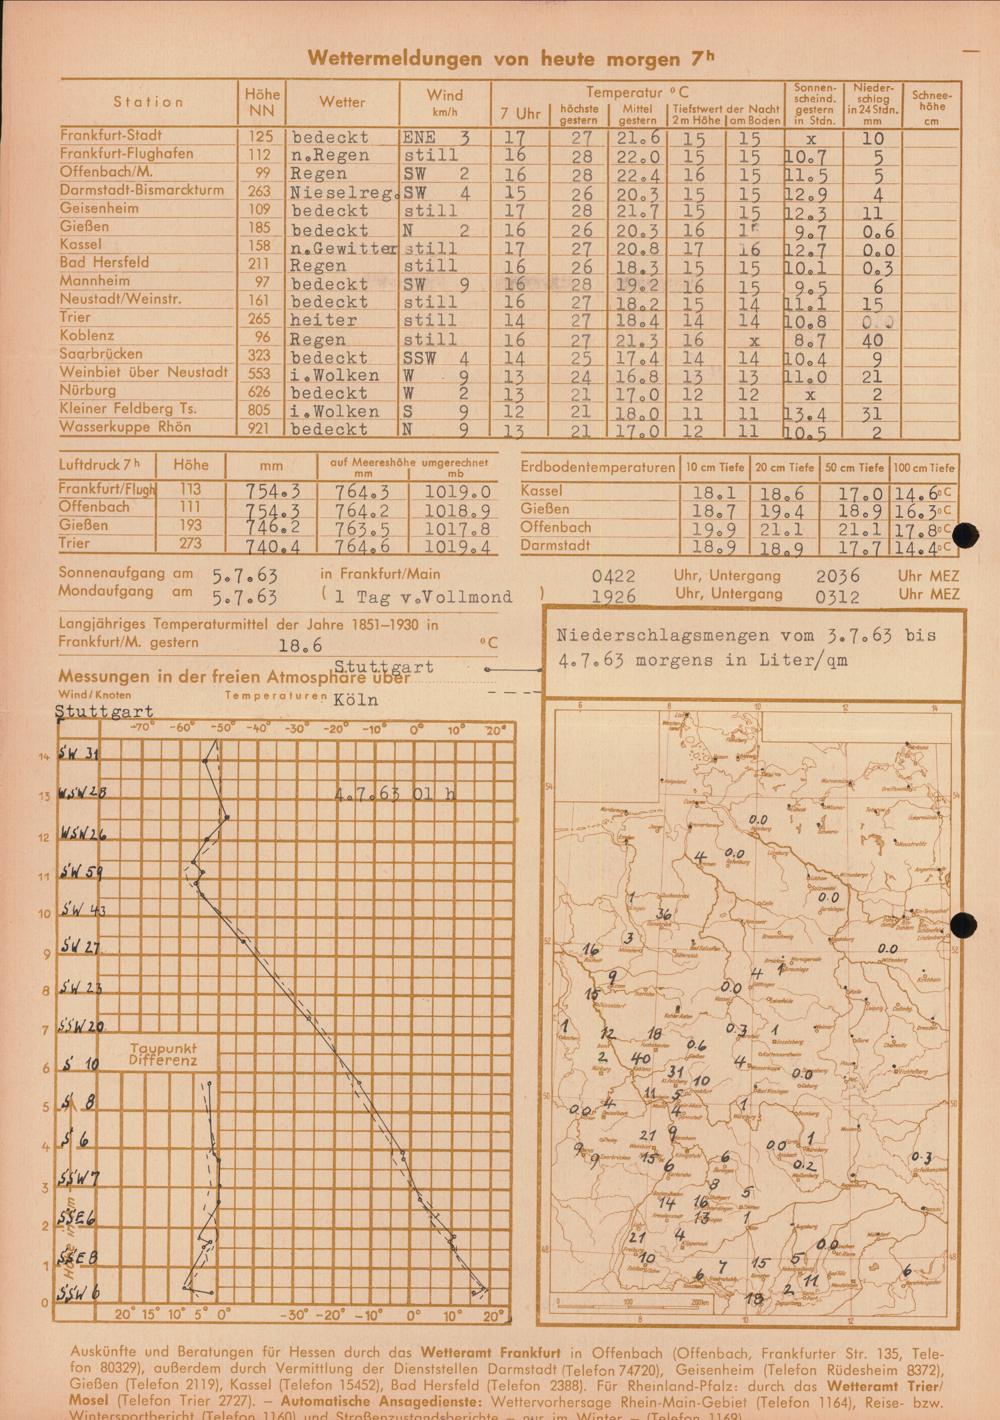 Wettermeldungen von heute morgen 7ʰ
Station Höhe NN Wetter Wind km/h Temperatur °C Sonnenscheind. gestern in Stdn. Niederschlag in 24 Stdn. mm Schneehöhe cm
7 Uhr höchste gestern Mittel gestern Tiefstwert der Nacht 2 m Höhe am Boden
Frankfurt-Stadt 125 bedeckt ENE 3 17 27 21.6 15 15 x 10
Frankfurt-Flughafen 112 n.Regen still 16 28 22.0 15 15 10.7 5
Offenbach/M. 99 Regen SW 2 16 28 22.4 16 15 11.5 5
Darmstadt-Bismarckturm 263 Nieselreg. SW 4 15 26 20.3 15 15 12.9 4
Geisenheim 109 bedeckt still 17 28 21.7 15 15 12.3 11
Gießen 185 bedeckt N 2 16 26 20.3 16 9.7 0.6
Kassel 158 n.Gewitter still 17 27 20.8 17 16 12.7 0.0
Bad Hersfeld 211 Regen still 16 26 18.3 15 15 10.1 0.3
Mannheim 97 bedeckt SW 9 16 28 19.2 16 15 9.5 6
Neustadt/Weinstr. 161 bedeckt still 16 27 18.2 15 14 11.1 15
Trier 265 heiter still 14 27 18.4 14 14 10.8 0.0
Koblenz 96 Regen still 16 27 21.3 16 x 8.7 40
Saarbrücken 323 bedeckt SSW 4 14 25 17.4 14 14 10.4 9
Weinbiet über Neustadt 553 i.Wolken W 9 13 24 16.8 13 13 11.0 21
Nürburg 626 bedeckt W 2 13 21 17.0 12 12 x 2
Kleiner Feldberg Ts. 805 i.Wolken S 9 12 21 18.0 11 11 13.4 31
Wasserkuppe Rhön 921 bedeckt N 9 13 21 17.0 12 11 10.5 2
Luftdruck 7ʰ Höhe mm auf Meereshöhe umgerechnet mm mb
Frankfurt/Flugh 113 754.3 764.3 1019.0
Offenbach 111 754.3 764.2 1018.9
Gießen 193 746.2 763.5 1017.8
Trier 273 740.4 764.6 1019.4
Erdbodentemperaturen 10 cm Tiefe 20 cm Tiefe 50 cm Tiefe 100 cm Tiefe
Kassel 18.1 18.6 17.0 14.6°C
Gießen 18.7 19.4 18.9 16.3°C
Offenbach 19.9 21.1 21.1 17.8°C
Darmstadt 18.9 18.9 17.7 14.4°C
Sonnenaufgang am 5.7.63 in Frankfurt/Main 0422 Uhr, Untergang 2036 Uhr MEZ
Mondaufgang am 5.7.63 ( 1 Tag v.Vollmond ) 1926 Uhr, Untergang 0312 Uhr MEZ
Langjähriges Temperaturmittel der Jahre 1851–1930 in
Frankfurt/M. gestern 18.6 °C
Niederschlagsmengen vom 3.7.63 bis
4.7.63 morgens in Liter/qm
Messungen in der freien Atmosphäre über Stuttgart
Wind/Knoten Temperaturen Köln
Stuttgart
-70° -60° -50° -40° -30° -20° -10° 0° 10° 20°
14 SW 31
13 WSW 28
4.7.63 01 h
12 WSW 26
11 SW 59
10 SW 43
9 SW 27
8 SW 23
7 SSW 20
Taupunkt
Differenz
6 S 10
5 S 8
4 S 6
3 SSW 7
2 SSE 6
1 SSE 8
0 SSW 6
20° 15° 10° 5° 0° -30° -20° -10° 0° 10° 20°
6 8 10 12 14
0.0
4 0.0
1 0.0
36
3
16 0.0
9 4 1
15 0.0
1 12 18 0.3 1
2 40 0.6 4
31 10 0.0
11 5
0.0 4 4 1
21 9 1
9 9 15 6 6 0.0 0.2 0.3
8 5
14 16
13 1
21 4 0.0
10 7 15 5 6
6 11
18 2
0 100 200km
Auskünfte und Beratungen für Hessen durch das Wetteramt Frankfurt in Offenbach (Offenbach, Frankfurter Str. 135, Tele-
fon 80329), außerdem durch Vermittlung der Dienststellen Darmstadt (Telefon 74720), Geisenheim (Telefon Rüdesheim 8372),
Gießen (Telefon 2119), Kassel (Telefon 15452), Bad Hersfeld (Telefon 2388). Für Rheinland-Pfalz: durch das Wetteramt Trier/
Mosel (Telefon Trier 2727). – Automatische Ansagedienste: Wettervorhersage Rhein-Main-Gebiet (Telefon 1164), Reise- bzw.
Wintersportbericht (Telefon 1160) und Straßenzustandsberichte – nur im Winter – (Telefon 1169)